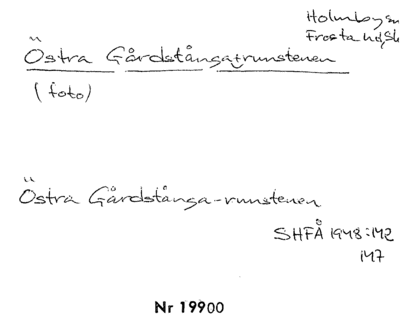 Holmby sn
Frosta hd, Sk
Östra Gårdstånga-runstenen
(foto)
Östra Gårdstånga-runstenen
SHFÅ 1948:142
147
Nr 19900